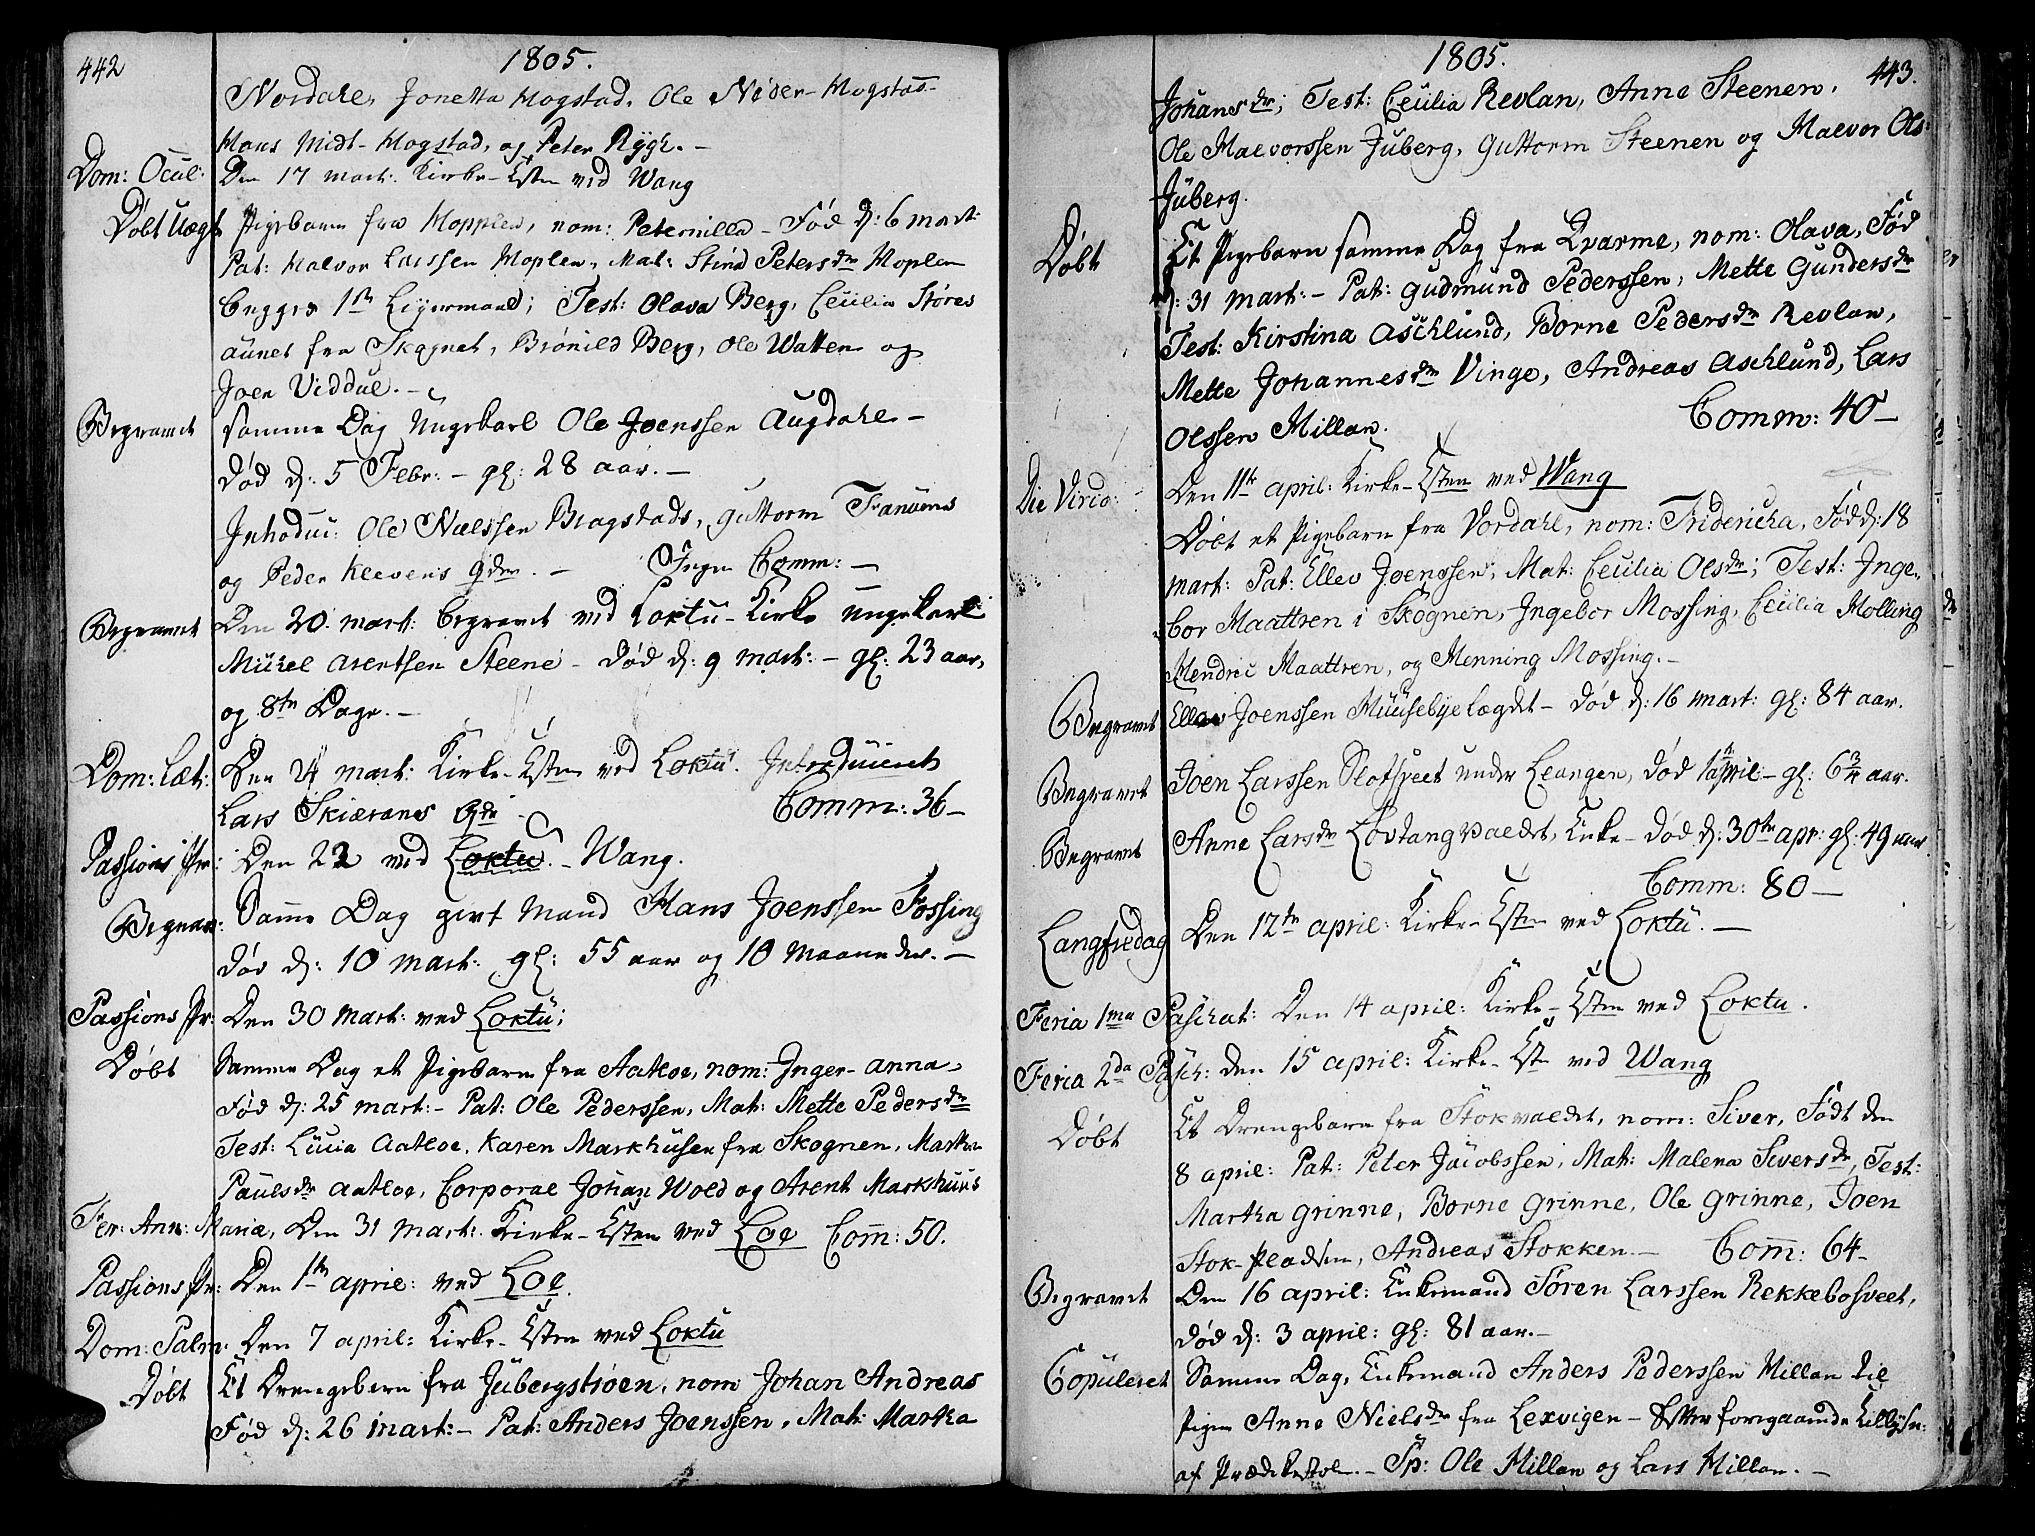 442
1805.
Nordahl, Jonetta Mogstad, Ole Neder-Mogstad-
Hans Midt-Mogstad, og Peter Rygh. -
Dom: Ocul: Den 17 mart: Kirke-Tsten ved Wang
Døbt Uægt Pigebarn fra Hopplen, nom: Peternilla - Fød d: 6 mart:
Pat: Halvor Larssen Hoplen, Mat: Stina Petersdr Hoplen
begges 1te Leyermaal; Test: Olava Berg, Cecilia Støres
aunet fra Skognet, Brønild Berg, Ole Watten og
Joen Viddul. -
Begravet samme Dag Ungekarl Ole Joenssen Augdahl -
Død d: 5 Febr: - gl: 28 aar. -
Introduc: Ole Nielssen Bragstads, Guttorm Tranuens
og Peder Klevens qdr. - Ingen Comm: -
Begravet Den 20 mart: begravet ved Loktu-Kirke ungekarl
Mickel Arentsen Steene - Død d: 9 mart: - gl: 23 aar,
og 8te Dage. -
Dom: Læt: Den 24 mart: Kirke-Tsten ved Loktu. Introduceret
Lars Skierans qdr - Comm: 36 -
Passions Pr: Den 22 ved Loktu. - Wang.
Begrav: Samme Dag givt Mand Hans Joenssen Fossing
Død d: 10 mart: gl: 55 aar og 10 Maaneder. -
Passions Pr: Den 30 Mart: ved Loktu;
Døbt Samme Dag et Pigebarn fra Aatloe, nom: Inger-Anna,
Fød d: 25 mart: - Pat: Ole Pederssen, Mat: Mette Pedersdr
Test: Lucia Aatloe, Karen Markhusen fra Skognen, Martha
Paulsdr Aatloe, Corporal Johan Wold og Arent Markshuus
Fer: Ann: Mariæ, Den 31 Mart: Kirke-Tsten ved Loe Com: 50.
Passions Pr: Den 1te april: ved Loe.
Dom: Palm: Den 7 april: Kirke-Tsten ved Loktu
Døbt Et Drengebarn fra Jubergstrøen, nom Johan Andreas
Fød d: 26 mart: - Pat: Anders Joenssen, Mat: Martha
1805.
443.
Johansdr; Test: Cecilia Revlan, Anne Steenen,
Ole Halvorssen Juberg, Guttorm Steenen og Halvor Ols:
Juberg.
Døbt Et Pigebarn samme Dag fra Qvarme, nom: Olava, Fød
d: 31 mart: - Pat: Gudmund Pederssen, Mette Gundersdr
Test: Kirstina Aschlund, Borne Pedersdr Revlan,
Mette Johannesdr Vinge, Andreas Aschlund, Lars
Olssen Millan. Comm: 40 -
Die Virid: Den 11te april: Kirke-Tsten ved Wang
Døbt et Pigebarn fra Vordahl, nom: Fridericka, Fød d: 18
mart: Pat: Ellev Joenssen, Mat: Cecilia Olsdr; Test: Inge-
bor Maattren i Skognen, Ingebor Mossing, Cecilia Molling
Hendric Maattren, og Henning Mossing. -
Begravet Ellev Joenssen Muusebye Lægdet - Død d: 16 mart: gl: 84 aar.
Begravet Joen Larssen Slotsveet under Leangen, død 1 april - gl: 6 3/4 aar.
Begravet Anne Larsdr Lovtangvaldet, Enke - død d: 30te apr: gl: 49 aar.
Comm: 80 -
Langfredag Den 12te april: Kirke-Tsten ved Loktu. -
Feria 1ma Paschat: Den 14 april: Kirke-Tsten ved Loktu.
Feria 2da Pasch: Den 15 april: Kirke-Tste ved Wang
Døbt Et Drengebarn fra Stokvaldet, nom: Siver, Født den
8 april: Pat: Peter Jacobssen, Mat: Malena Siversdr, Test:
Martha Grinne, Borne Grinne, Ole Grinne, Joen
Stok-Pladsen, Andreas Stokken. - Com: 64 -
Begravet Den 16 april: Enkemand Søren Larssen Rekkebosveet,
død d: 3 april: gl: 81 aar. -
Copuleret Samme Dag, Enkemand Anders Pederssen Millan til
Pigen Anne Nielsdr fra Lexvigen - Efter foregaaende Tillysn:
af Prædikestolen. - Sp: Ole Millan og Lars Millan. -